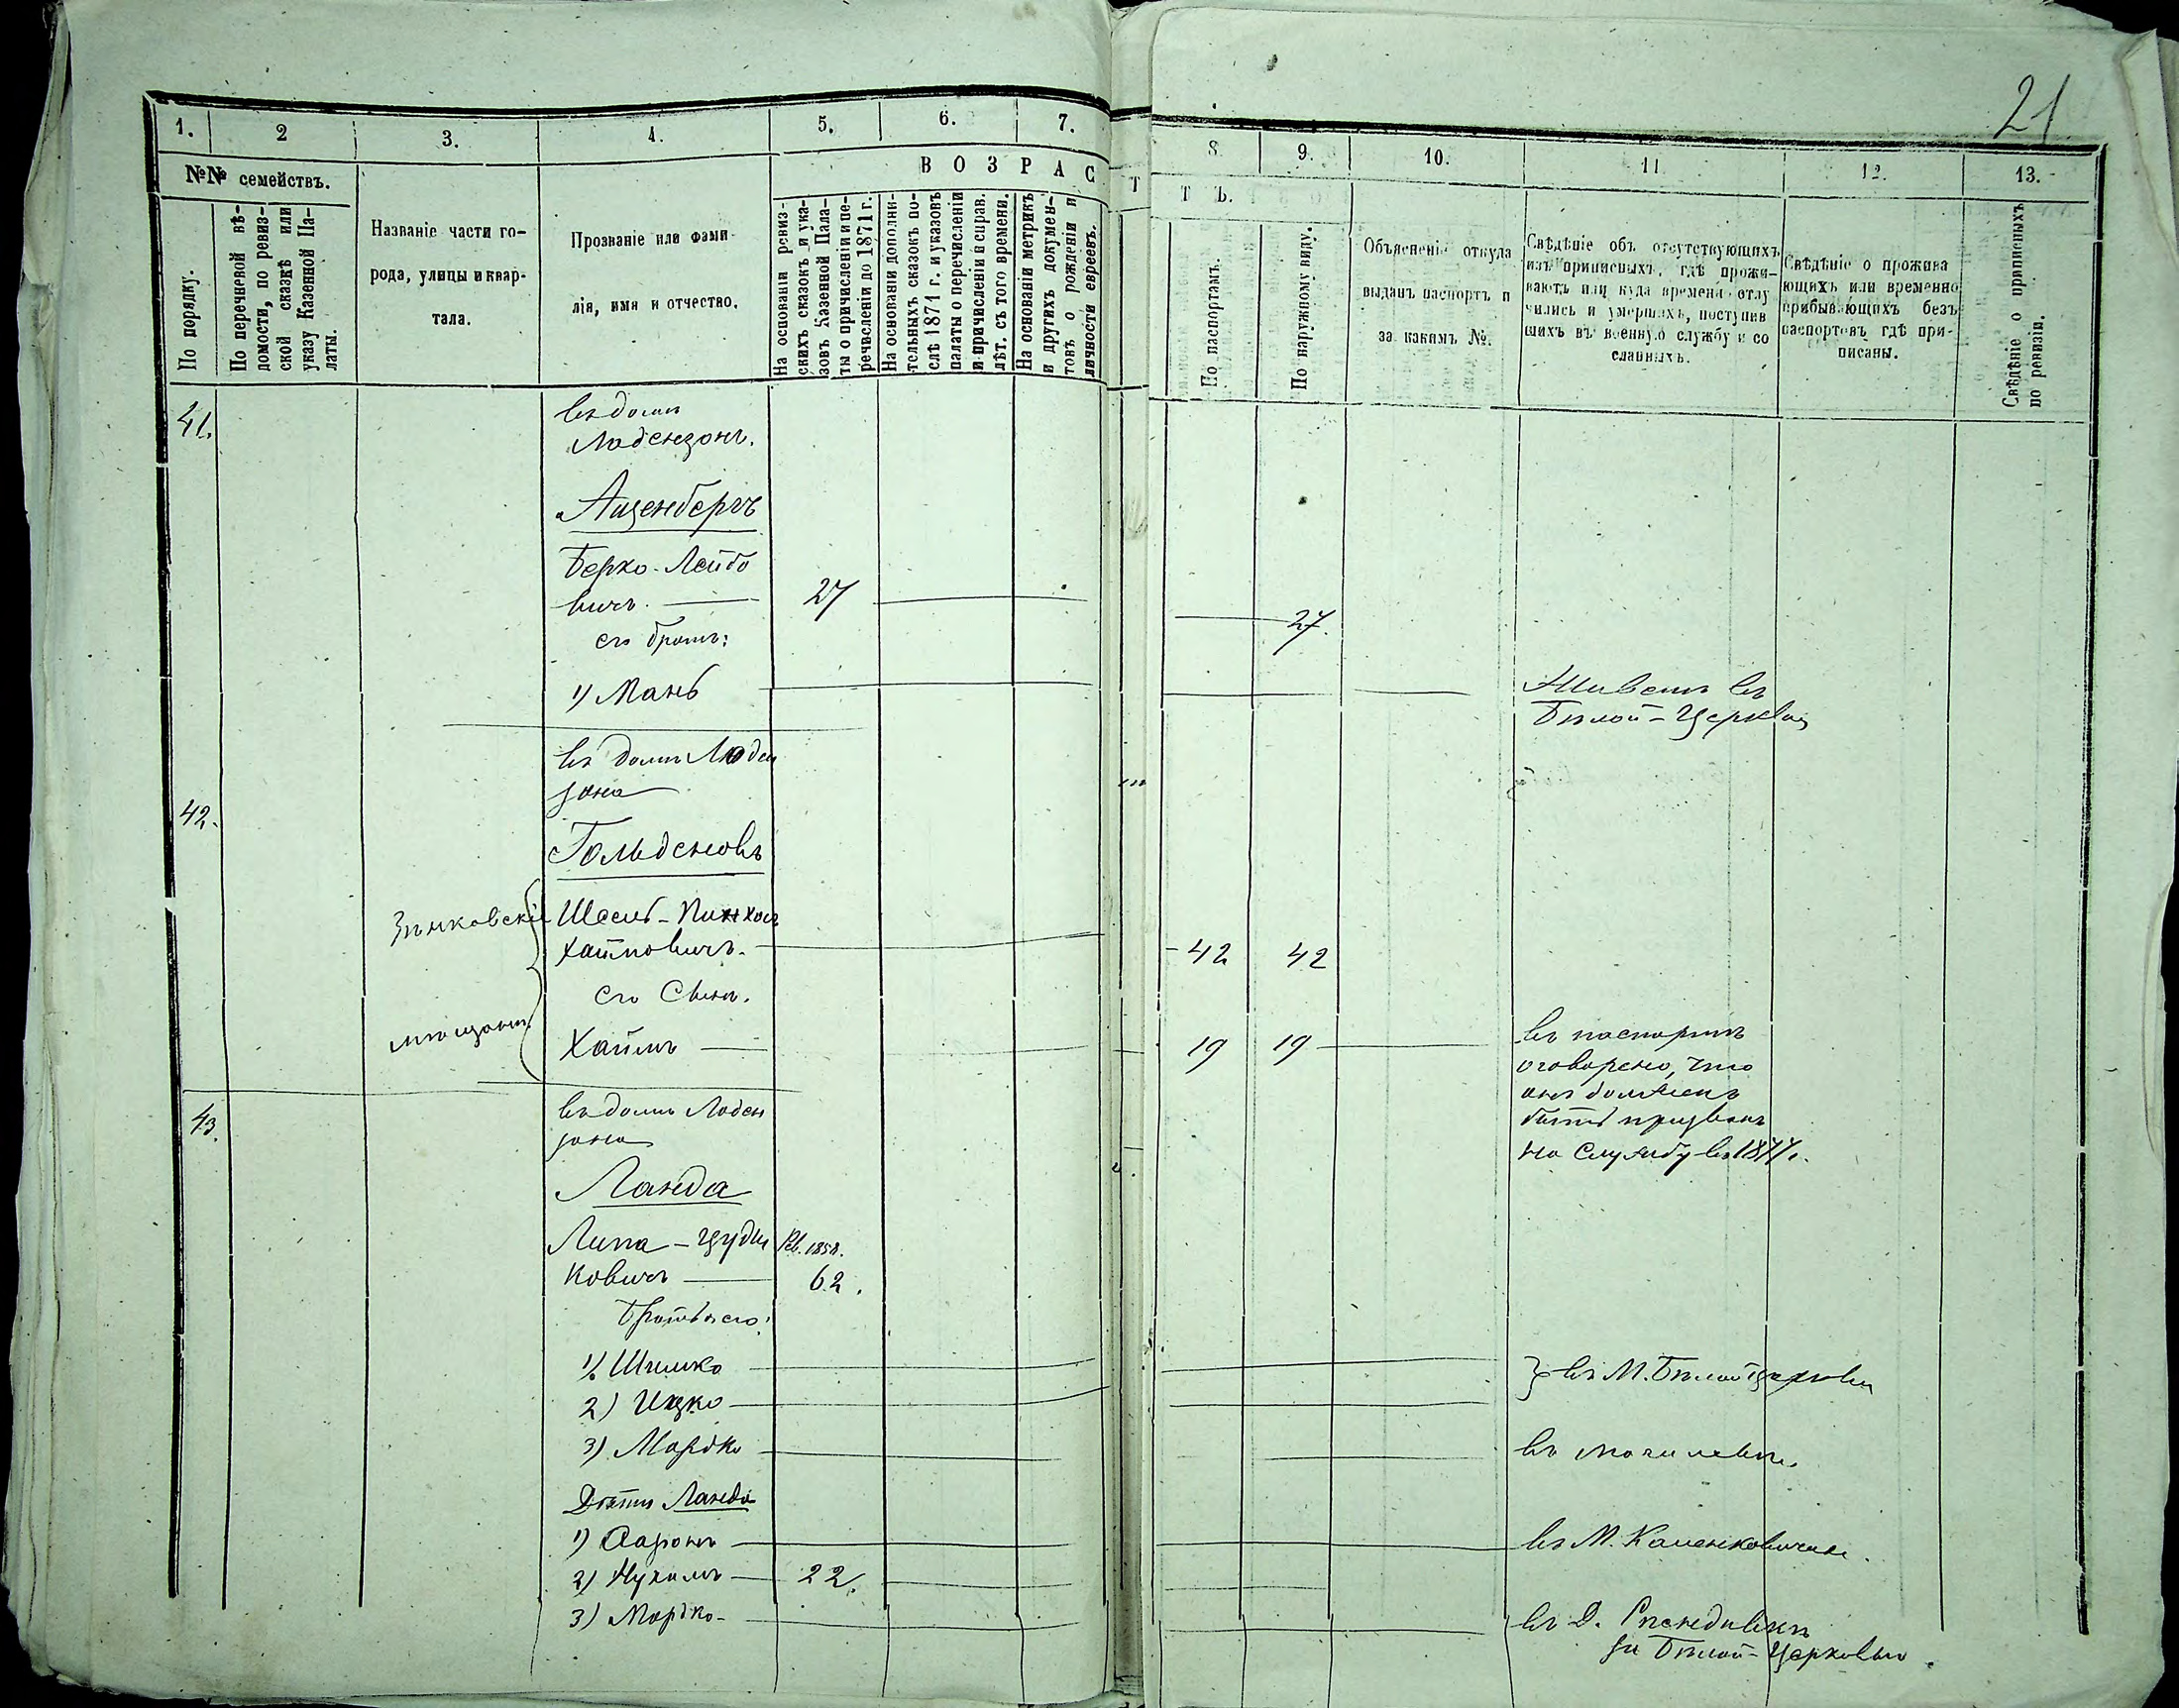 21
1. 2 3. 4. 5. 6. 7.
8. 9. 10. 11 12. 13.
№№ семействъ.
По порядку.
По перечневой вѣ-
домости, по ревиз-
ской сказкѣ или
указу Казенной Па-
латы.
Названіе части го-
рода, улицы и квар-
тала.
Прозваніе или фами-
лія, имя и отчество.
ВОЗРАС
Т Ъ.
На основаніи ревиз-
скихъ сказокъ и ука-
зовъ Казенной Пала-
ты о причисленіи и пе-
речисленіи до 1871 г.
На основаніи дополни-
тельныхъ сказокъ по-
слѣ 1871 г. и указовъ
палаты о перечисленіи
и причисленіи и справ.
лѣт. съ того времени.
На основаніи метрикъ
и другихъ докумен-
товъ о рожденіи и
личности евреевъ.
По паспортамъ.
По наружному виду.
Объясненіе откуда
выданъ паспортъ и
за какимъ №.
Свѣдѣніе объ отсутствующихъ
изъ приписныхъ, гдѣ прожи-
ваютъ или куда времени отлу
чились и умершихъ, поступив
шихъ въ военную службу и со
сланныхъ.
Свѣдѣніе о прожива
ющихъ или временно
прибывающихъ безъ
паспортовъ гдѣ при-
писаны.
Свѣдѣніе о приписныхъ
по ревизіи.
41.
въ домѣ
Ладензонъ.
Аценбергъ
Берко-Лейбо
вичъ. 27 27.
его братъ:
1) Мань
Живетъ въ
Бѣлой-Церкви
въ домѣ Люден
зона
42.
Гольденовъ
Зѣньковскіе
Шоель-Пинхосъ
Хаймовичъ. 42 42
его Сынъ.
мѣщане
Хаимъ 19 19
въ паспортѣ
оговорено, что
онъ долженъ
быть призванъ
на службу въ 1877 г.
43.
въ домѣ Ладен
зона
Ланда
Липа-Цуди Рев. 1858.
ковичъ 62.
Братья его:
1) Шлемко
2) Ицко
въ М. Бѣлой церкви
3) Мордко
въ Могилевѣ.
Дѣти Ланда
1) Ааронъ
въ М.
2) Нухимъ 22.
3) Мордко
въ Д.
за Бѣлой-Церковью.